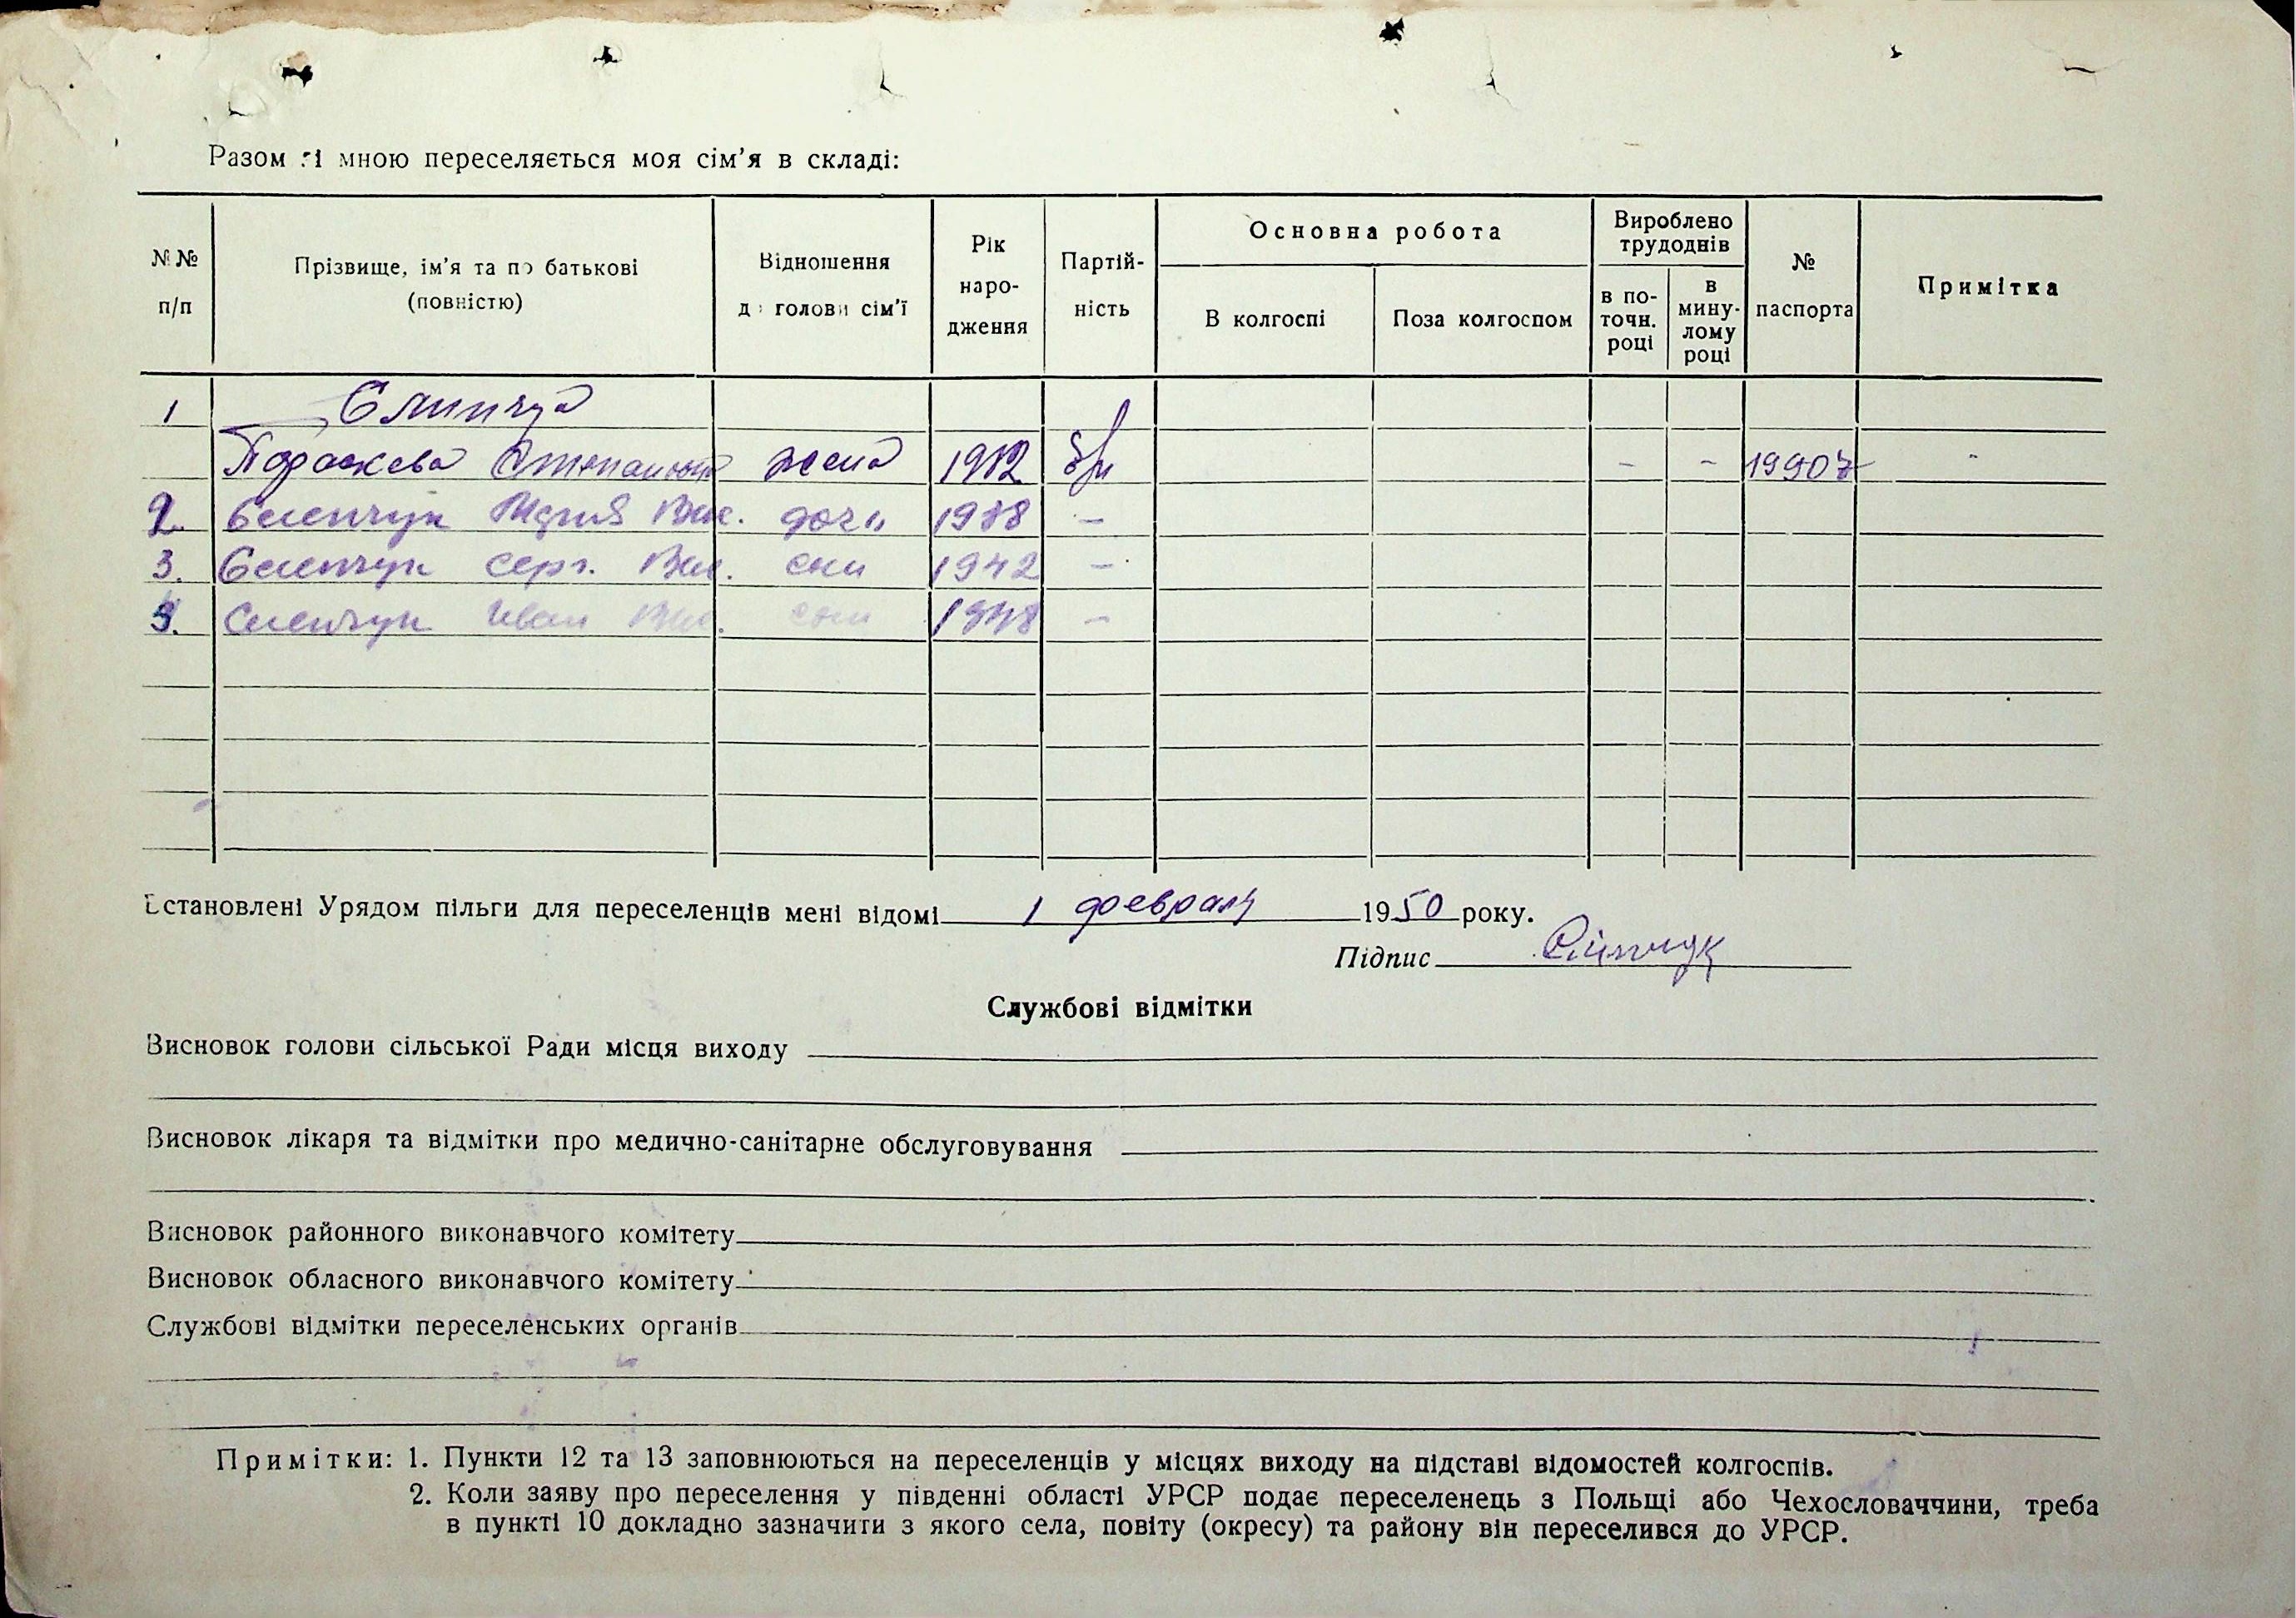 Разом зі мною переселяється моя сім'я в складі:
№№ п/п
Прізвище, ім'я та по батькові (повністю)
Відношення до голови сім'ї
Рік народження
Партійність
Основна робота
В колгоспі
Поза колгоспом
Вироблено трудоднів
в поточн. році
в минулому році
№ паспорта
Примітка
1
Параскева жена 1912 б/п - - 19907 -
2. Марія Вас. дочь 1938 -
3. Серг. Вас. сын 1942 -
Иван Вас. сын 1948 -
Встановлені Урядом пільги для переселенців мені відомі 1 февраля 1950 року.
Підпис
Службові відмітки
Висновок голови сільської Ради місця виходу
Висновок лікаря та відмітки про медично-санітарне обслуговування
Висновок районного виконавчого комітету
Висновок обласного виконавчого комітету
Службові відмітки переселенських органів
Примітки: 1. Пункти 12 та 13 заповнюються на переселенців у місцях виходу на підставі відомостей колгоспів.
2. Коли заяву про переселення у південні області УРСР подає переселенець з Польщі або Чехословаччини, треба
в пункті 10 докладно зазначити з якого села, повіту (окресу) та району він переселився до УРСР.